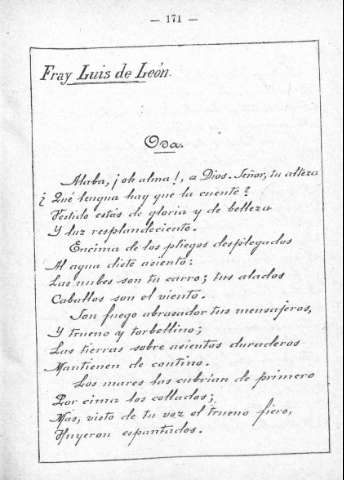 — 171 —
Fray Luis de León.
Oda.
Alaba, ¡oh alma!, a Dios. Señor, tu alteza
¿Qué lengua hay que la cuente?
Vestido estás de gloria y de belleza
Y luz resplandeciente.
Encima de los pliegos desplegados
Al agua diste asiento:
Las nubes son tu carro; tus alados
Caballos son el viento.
Son fuego abrasador tus mensajeros,
Y trueno y torbellino;
Las tierras sobre asientos duraderos
Mantienen de contino.
Los mares las cubrían de primero
Por cima los collados;
Mas, visto de tu voz el trueno fiero,
Huyeron espantados.